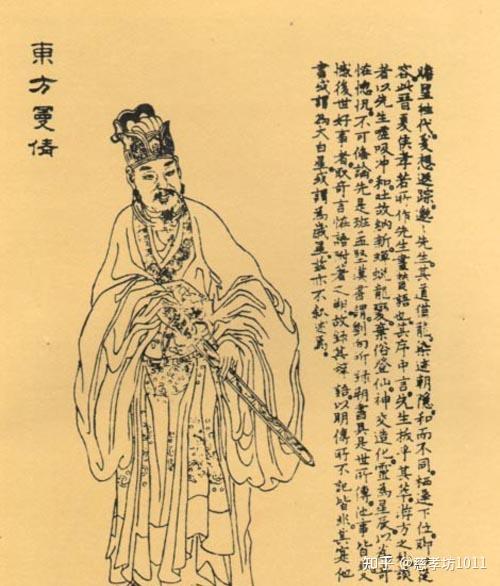 東方曼倩
瞻望往代爰想遐踪邈邈先生其道猶龍染迹朝隱和而不同栖遲下位聊
容此晉夏侯孝若所作先生畫贊語也其序中言先生拔乎其萃游方之外談
者以先生噓吸冲和吐故納新蟬蛻龍變棄俗登仙神交造化靈為星辰以奇
恠惚恍不可備論先是班孟堅漢書謂劉向所錄朔書具是世所傳他事皆非又
憾後世好事者取奇言恠語附著之朔故錄其語以明傳所不記皆非其實他
書或謂為太白星或謂為歲星茲亦不叙述焉
知乎 @慈孝坊1011